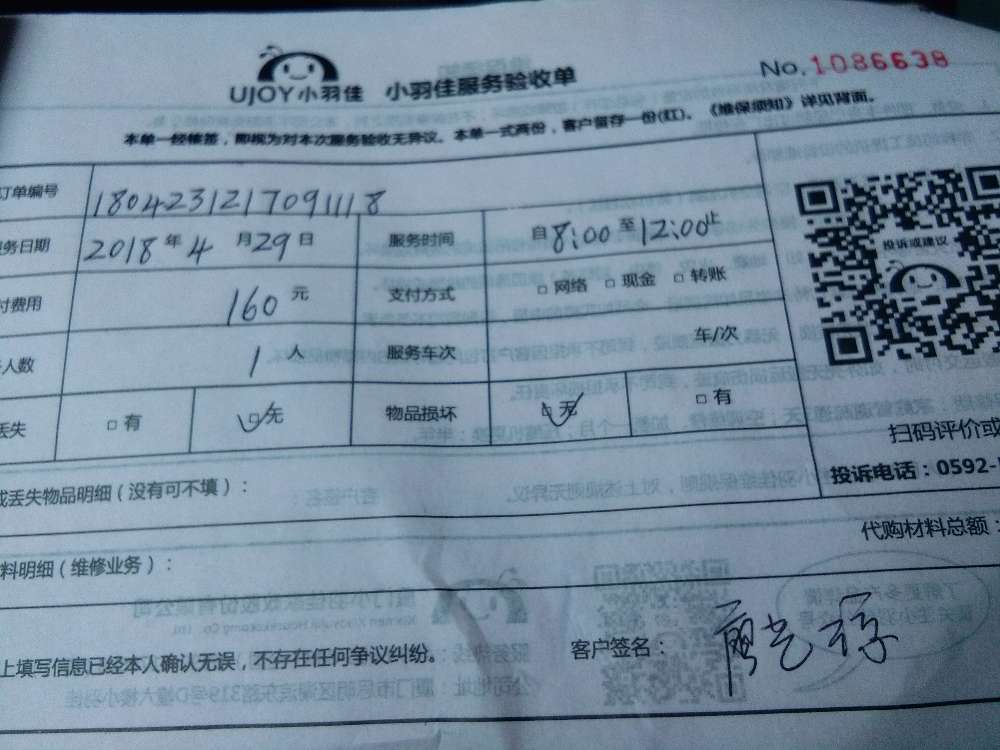 UJOY小羽佳 小羽佳服务验收单 No.1086638
本单一经签签，即视为对本次服务验收无异议。本单一式两份，客户留存一份(红)。《维保须知》详见背面。
订单编号 1804231217091118
务日期 2018年4月29日 服务时间 自8:00至12:00止
付费用 160元 支付方式 □网络 □现金 □转账
人数 1人 服务车次 车/次
丢失 □有 □无 物品损坏 □无 □有
投诉或建议
扫码评价或
投诉电话：0592-
或丢失物品明细（没有可不填）：
代购材料总额：
料明细（维修业务）：
上填写信息已经本人确认无误，不存在任何争议纠纷。 客户签名：